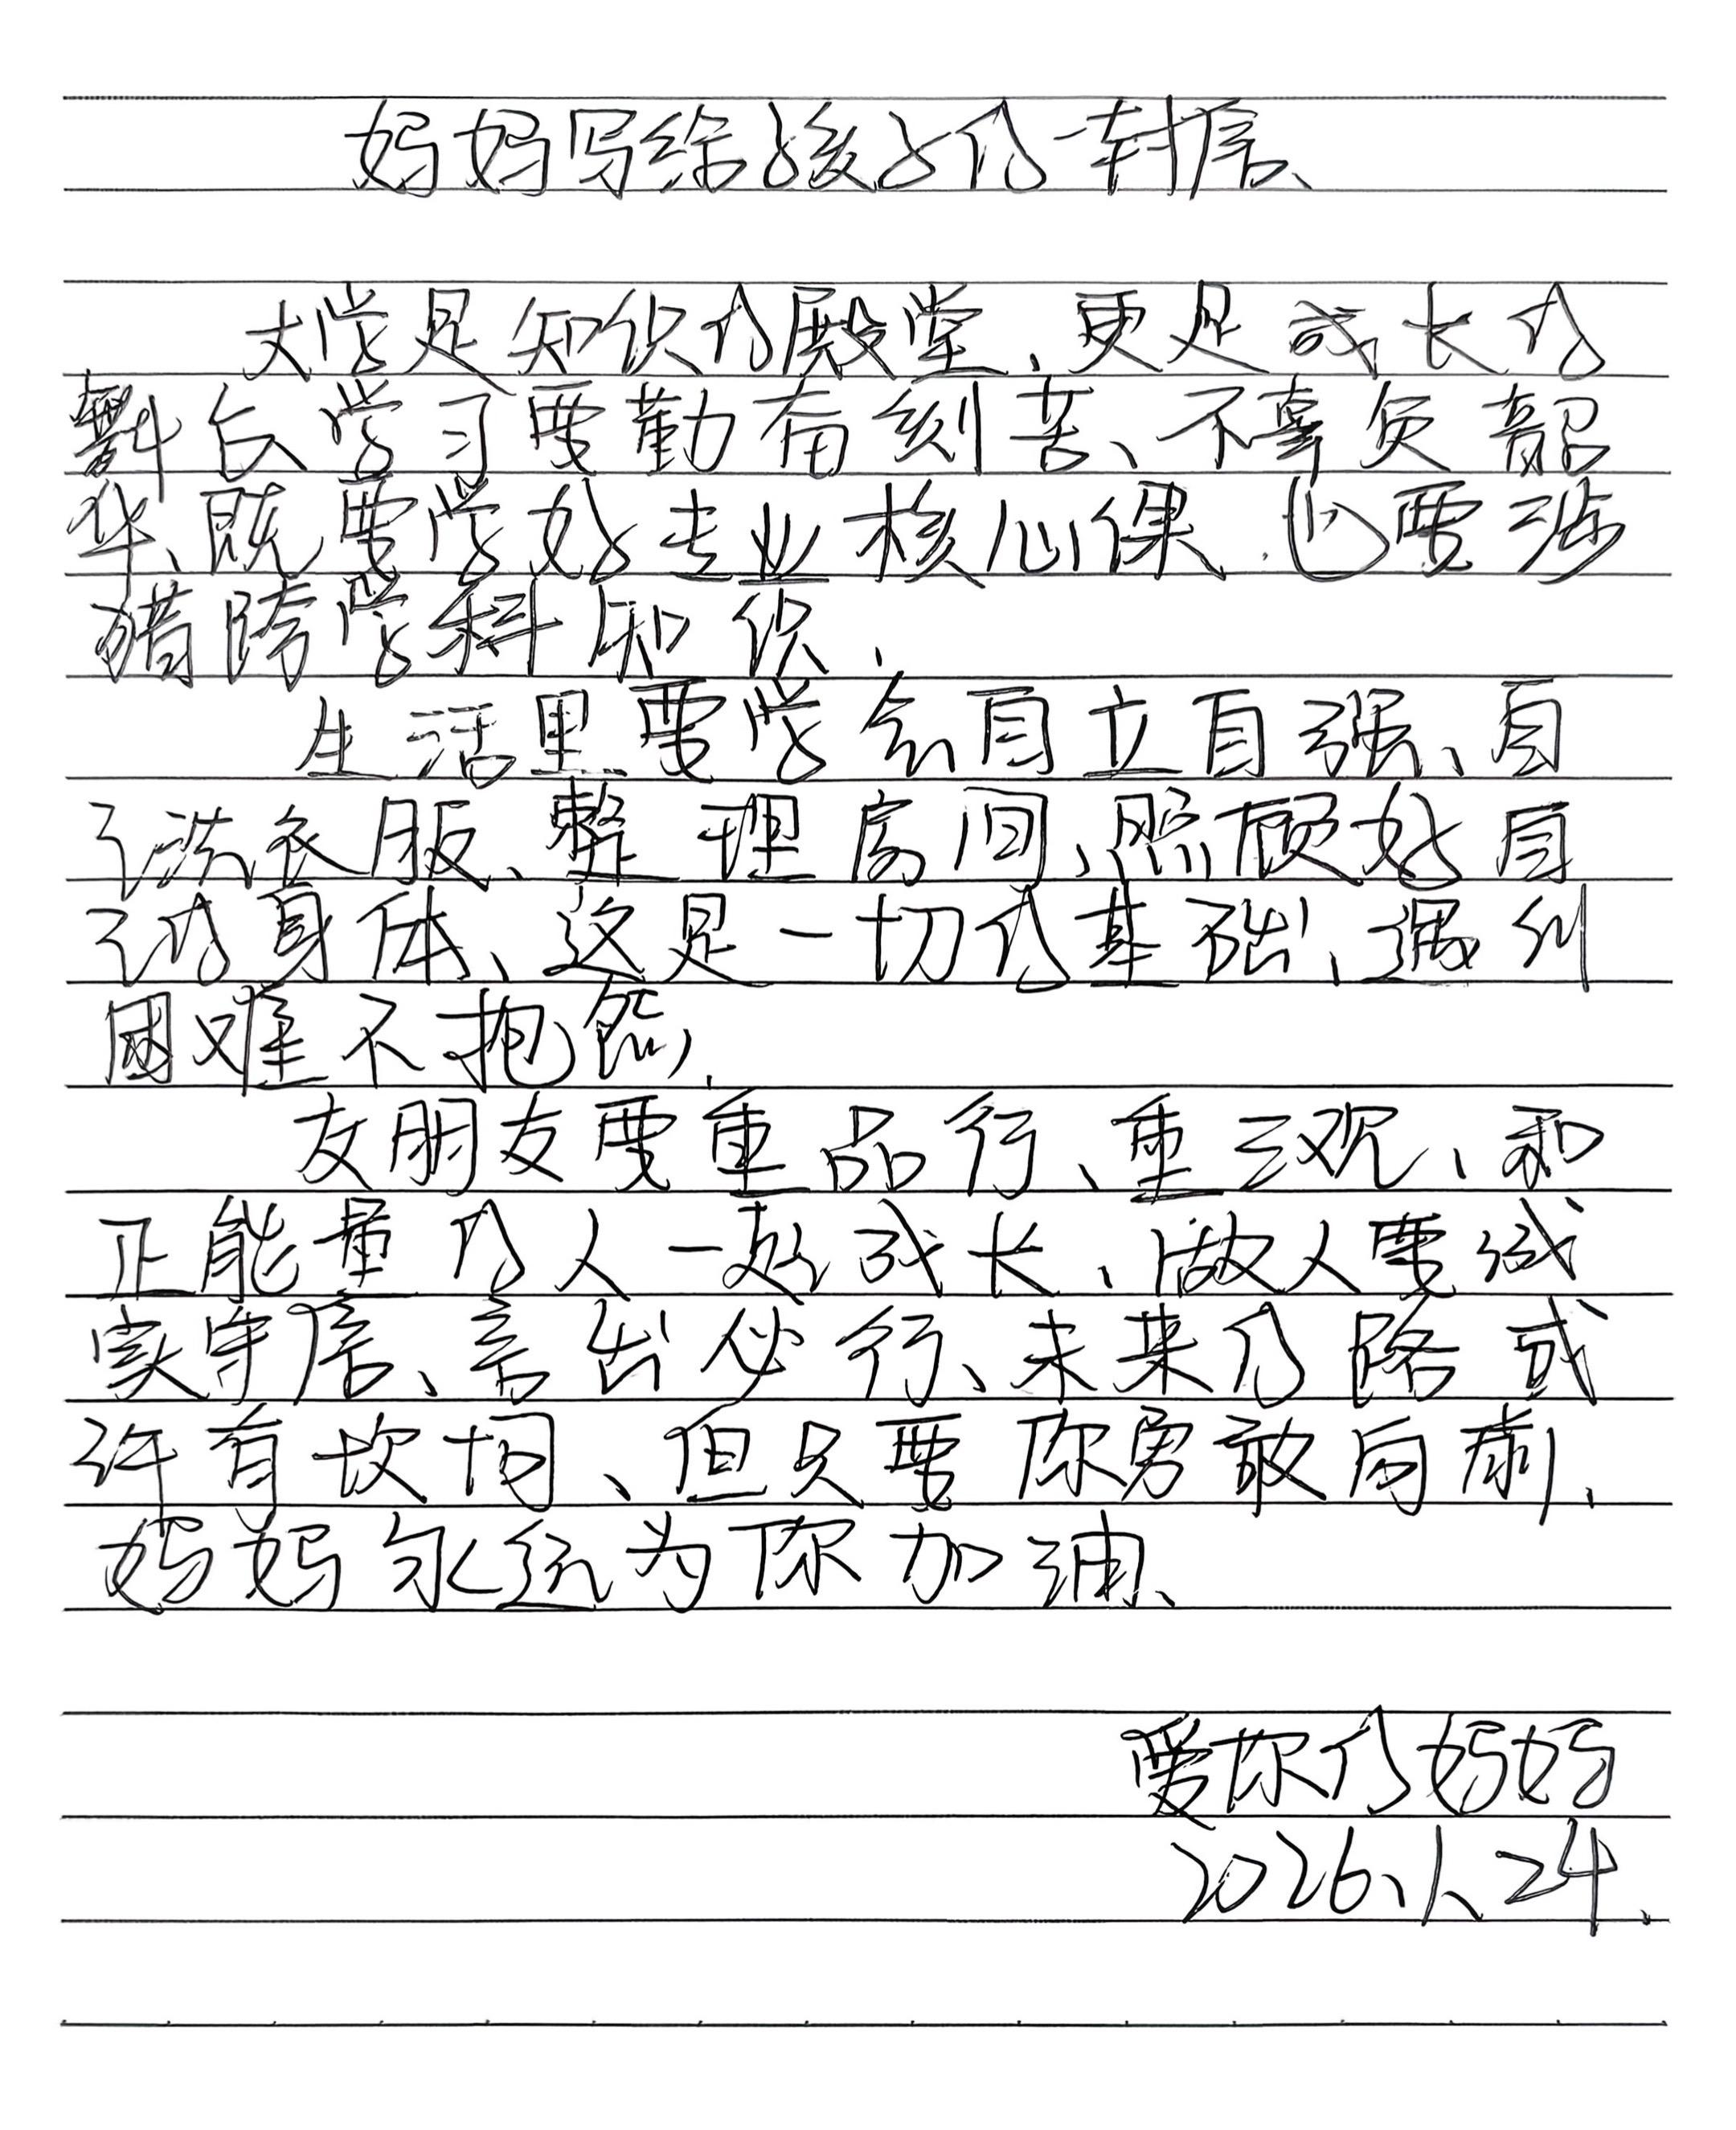 妈妈写给孩子的一封信、
大学是知识的殿堂、更是成长的
舞台、学习要勤奋刻苦、不辜负韶
华、既要学好专业核心课、也要涉
猎跨学科知识、
生活里要学会自立自强、自
己洗衣服、整理房间、照顾好自
己的身体、这是一切的基础、遇到
困难不抱怨、
交朋友要重品行、重三观、和
正能量的人一起成长、做人要诚
实守信、言出必行、未来的路或
许有坎坷、但只要你勇敢向前、
妈妈永远为你加油、
爱你的妈妈
2026、1、24、